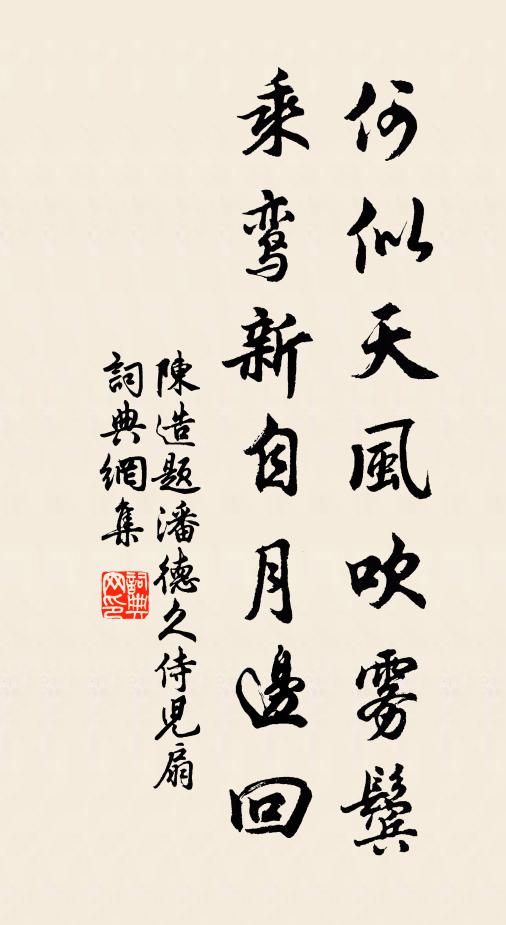 何似天風吹雾鬓
乘鸾新自月邊回
陳造題潘德久侍児扇
詞典網集
詞典网印